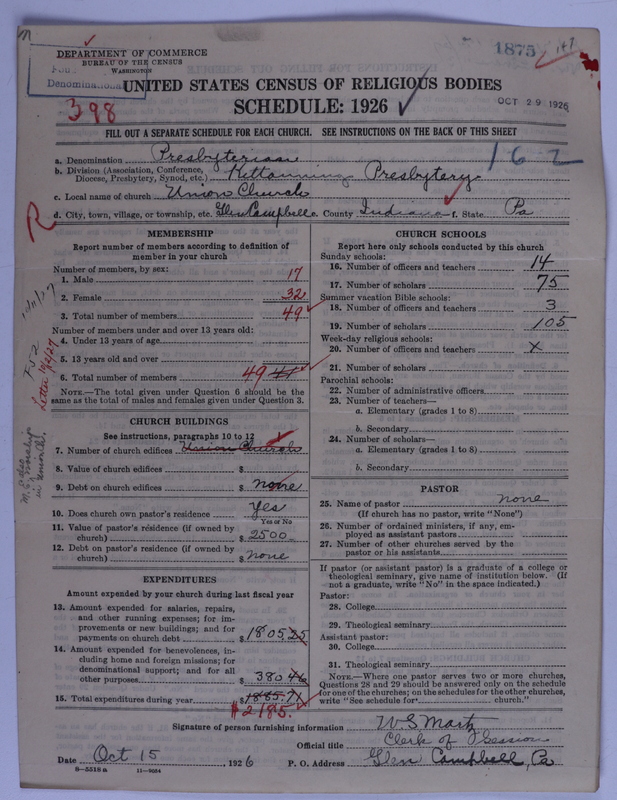 DEPARTMENT OF COMMERCE
BUREAU OF THE CENSUS
WASHINGTON
Denominational
398
1875
147
UNITED STATES CENSUS OF RELIGIOUS BODIES
SCHEDULE: 1926
OCT 29 1926
FILL OUT A SEPARATE SCHEDULE FOR EACH CHURCH. SEE INSTRUCTIONS ON THE BACK OF THIS SHEET
162
a. Denomination Presbyterian
b. Division (Association, Conference, Diocese, Presbytery, Synod, etc.) Kittanning Presbytery
c. Local name of church Union Church
d. City, town, village, or township, etc. Glen Campbell e. County Indiana f. State Pa
R
MEMBERSHIP
Report number of members according to definition of
member in your church
Number of members, by sex:
1. Male 17
2. Female 32
3. Total number of members 49
Number of members under and over 13 years old:
4. Under 13 years of age
5. 13 years old and over
6. Total number of members 49
NOTE.—The total given under Question 6 should be
same as the total of males and females given under Question 3.
Letter 10/2/27
M.E. also
worship
in Union Ch.
CHURCH BUILDINGS
See instructions, paragraphs 10 to 12
7. Number of church edifices Union Church
8. Value of church edifices $
9. Debt on church edifices $ none
10. Does church own pastor's residence Yes
Yes or No
11. Value of pastor's residence (if owned by
church) $ 2500
12. Debt on pastor's residence (if owned by
church) $ none
EXPENDITURES
Amount expended by your church during last fiscal year
13. Amount expended for salaries, repairs,
and other running expenses; for im-
provements or new buildings; and for
payments on church debt $ 1805.25
14. Amount expended for benevolences, in-
cluding home and foreign missions; for
denominational support; and for all
other purposes $ 380.46
15. Total expenditures during year $ 1885.71
$2185.
CHURCH SCHOOLS
Report here only schools conducted by this church
Sunday schools:
16. Number of officers and teachers 14
17. Number of scholars 75
Summer vacation Bible schools:
18. Number of officers and teachers 3
19. Number of scholars 105
Week-day religious schools:
20. Number of officers and teachers x
21. Number of scholars
Parochial schools:
22. Number of administrative officers
23. Number of teachers—
a. Elementary (grades 1 to 8)
b. Secondary
24. Number of scholars—
a. Elementary (grades 1 to 8)
b. Secondary
PASTOR
25. Name of pastor none
(If church has no pastor, write "None")
26. Number of ordained ministers, if any, em-
ployed as assistant pastors
27. Number of other churches served by the
pastor or his assistants
If pastor (or assistant pastor) is a graduate of a college or
theological seminary, give name of institution below. (If
not a graduate, write "No" in the space indicated.)
Pastor:
28. College
29. Theological seminary
Assistant pastor:
30. College
31. Theological seminary
NOTE.—Where one pastor serves two or more churches,
Questions 28 and 29 should be answered only on the schedule
for one of the churches; on the schedules for the other churches,
write "See schedule for church."
Signature of person furnishing information W. S. Martz
Official title Clerk of Session
Date Oct 15 1926 P. O. Address Glen Campbell, Pa
8-5518 a 11-9064